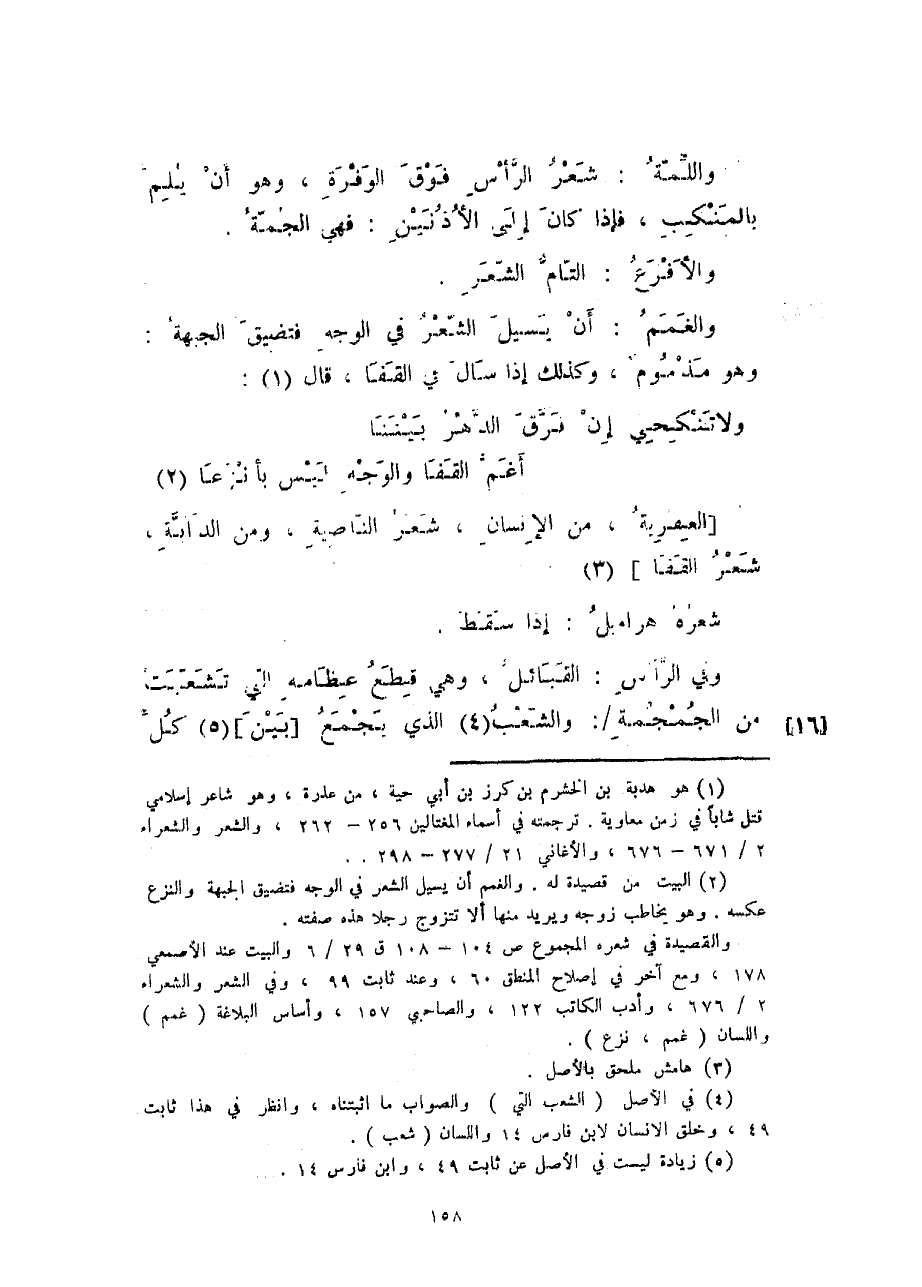 واللِّمَّةُ : شَعْرُ الرَّأْسِ فَوْقَ الوَفْرَةِ ، وهو أنْ يُلِمَّ
بالمَنْكِبِ ، فإذا كانَ إلَى الأُذُنَيْنِ : فهي الجُمَّةُ .
والأَفْرَعُ : التَّامُّ الشَّعَرِ .
والغَمَمُ : أَنْ يَسيلَ الشَّعْرُ في الوجهِ فتضيقَ الجبهةُ :
وهو مَذْمُومٌ ، وكذلك إذا سَالَ في القَفَا ، قال (١) :
ولاتَنْكِحِي إنْ فَرَّقَ الدَّهْرُ بَيْنَنَا
أَغَمَّ القَفَا والوَجْهِ لَيْسَ بأَنْزَعَا (٢)
[العِفْرِيةُ ، من الإنسانِ ، شَعَرُ النَّاصِيةِ ، ومن الدابَّةِ ،
شَعْرُ القَفَا ] (٣)
شعرُهُ هراميلُ : إذا سَقَطَ .
وفي الرَّأسِ : القَبَائلُ ، وهي قِطَعُ عِظَامِهِ التي تَشَعَّبَتْ
[١٦] من الجُمْجُمةِ /: والشَّعْبُ(٤) الذي يَجْمَعُ [بَيْنَ](٥) كُلِّ
(١) هو هدبة بن الخشرم بن كرز بن أبي حية ، من عذرة ، وهو شاعر إسلامي
قتل شاباً في زمن معاوية . ترجمته في أسماء المغتالين ٢٥٦ – ٢٦٢ ، والشعر والشعراء
٢ / ٦٧١ – ٦٧٦ ، والأغاني ٢١ / ٢٧٧ – ٢٩٨ . .
(٢) البيت من قصيدة له . والغمم أن يسيل الشعر في الوجه فتضيق الجبهة والنزع
عكسه . وهو يخاطب زوجه ويريد منها ألا تتزوج رجلا هذه صفته .
والقصيدة في شعره المجموع ص ١٠٤ – ١٠٨ ق ٢٩ / ٦ والبيت عند الأصمعي
١٧٨ ، ومع آخر في إصلاح المنطق ٦٠ ، وعند ثابت ٩٩ ، وفي الشعر والشعراء
٢ / ٦٧٦ ، وأدب الكاتب ١٢٢ ، والصاحبي ١٥٧ ، وأساس البلاغة ( غمم )
واللسان ( غمم ، نزع ) .
(٣) هامش ملحق بالأصل .
(٤) في الأصل ( الشعب التي ) والصواب ما اثبتناه ، وانظر في هذا ثابت
٤٩ ، وخلق الانسان لابن فارس ١٤ واللسان ( شعب ) .
(٥) زيادة ليست في الأصل عن ثابت ٤٩ ، وابن فارس ١٤ .
١٥٨